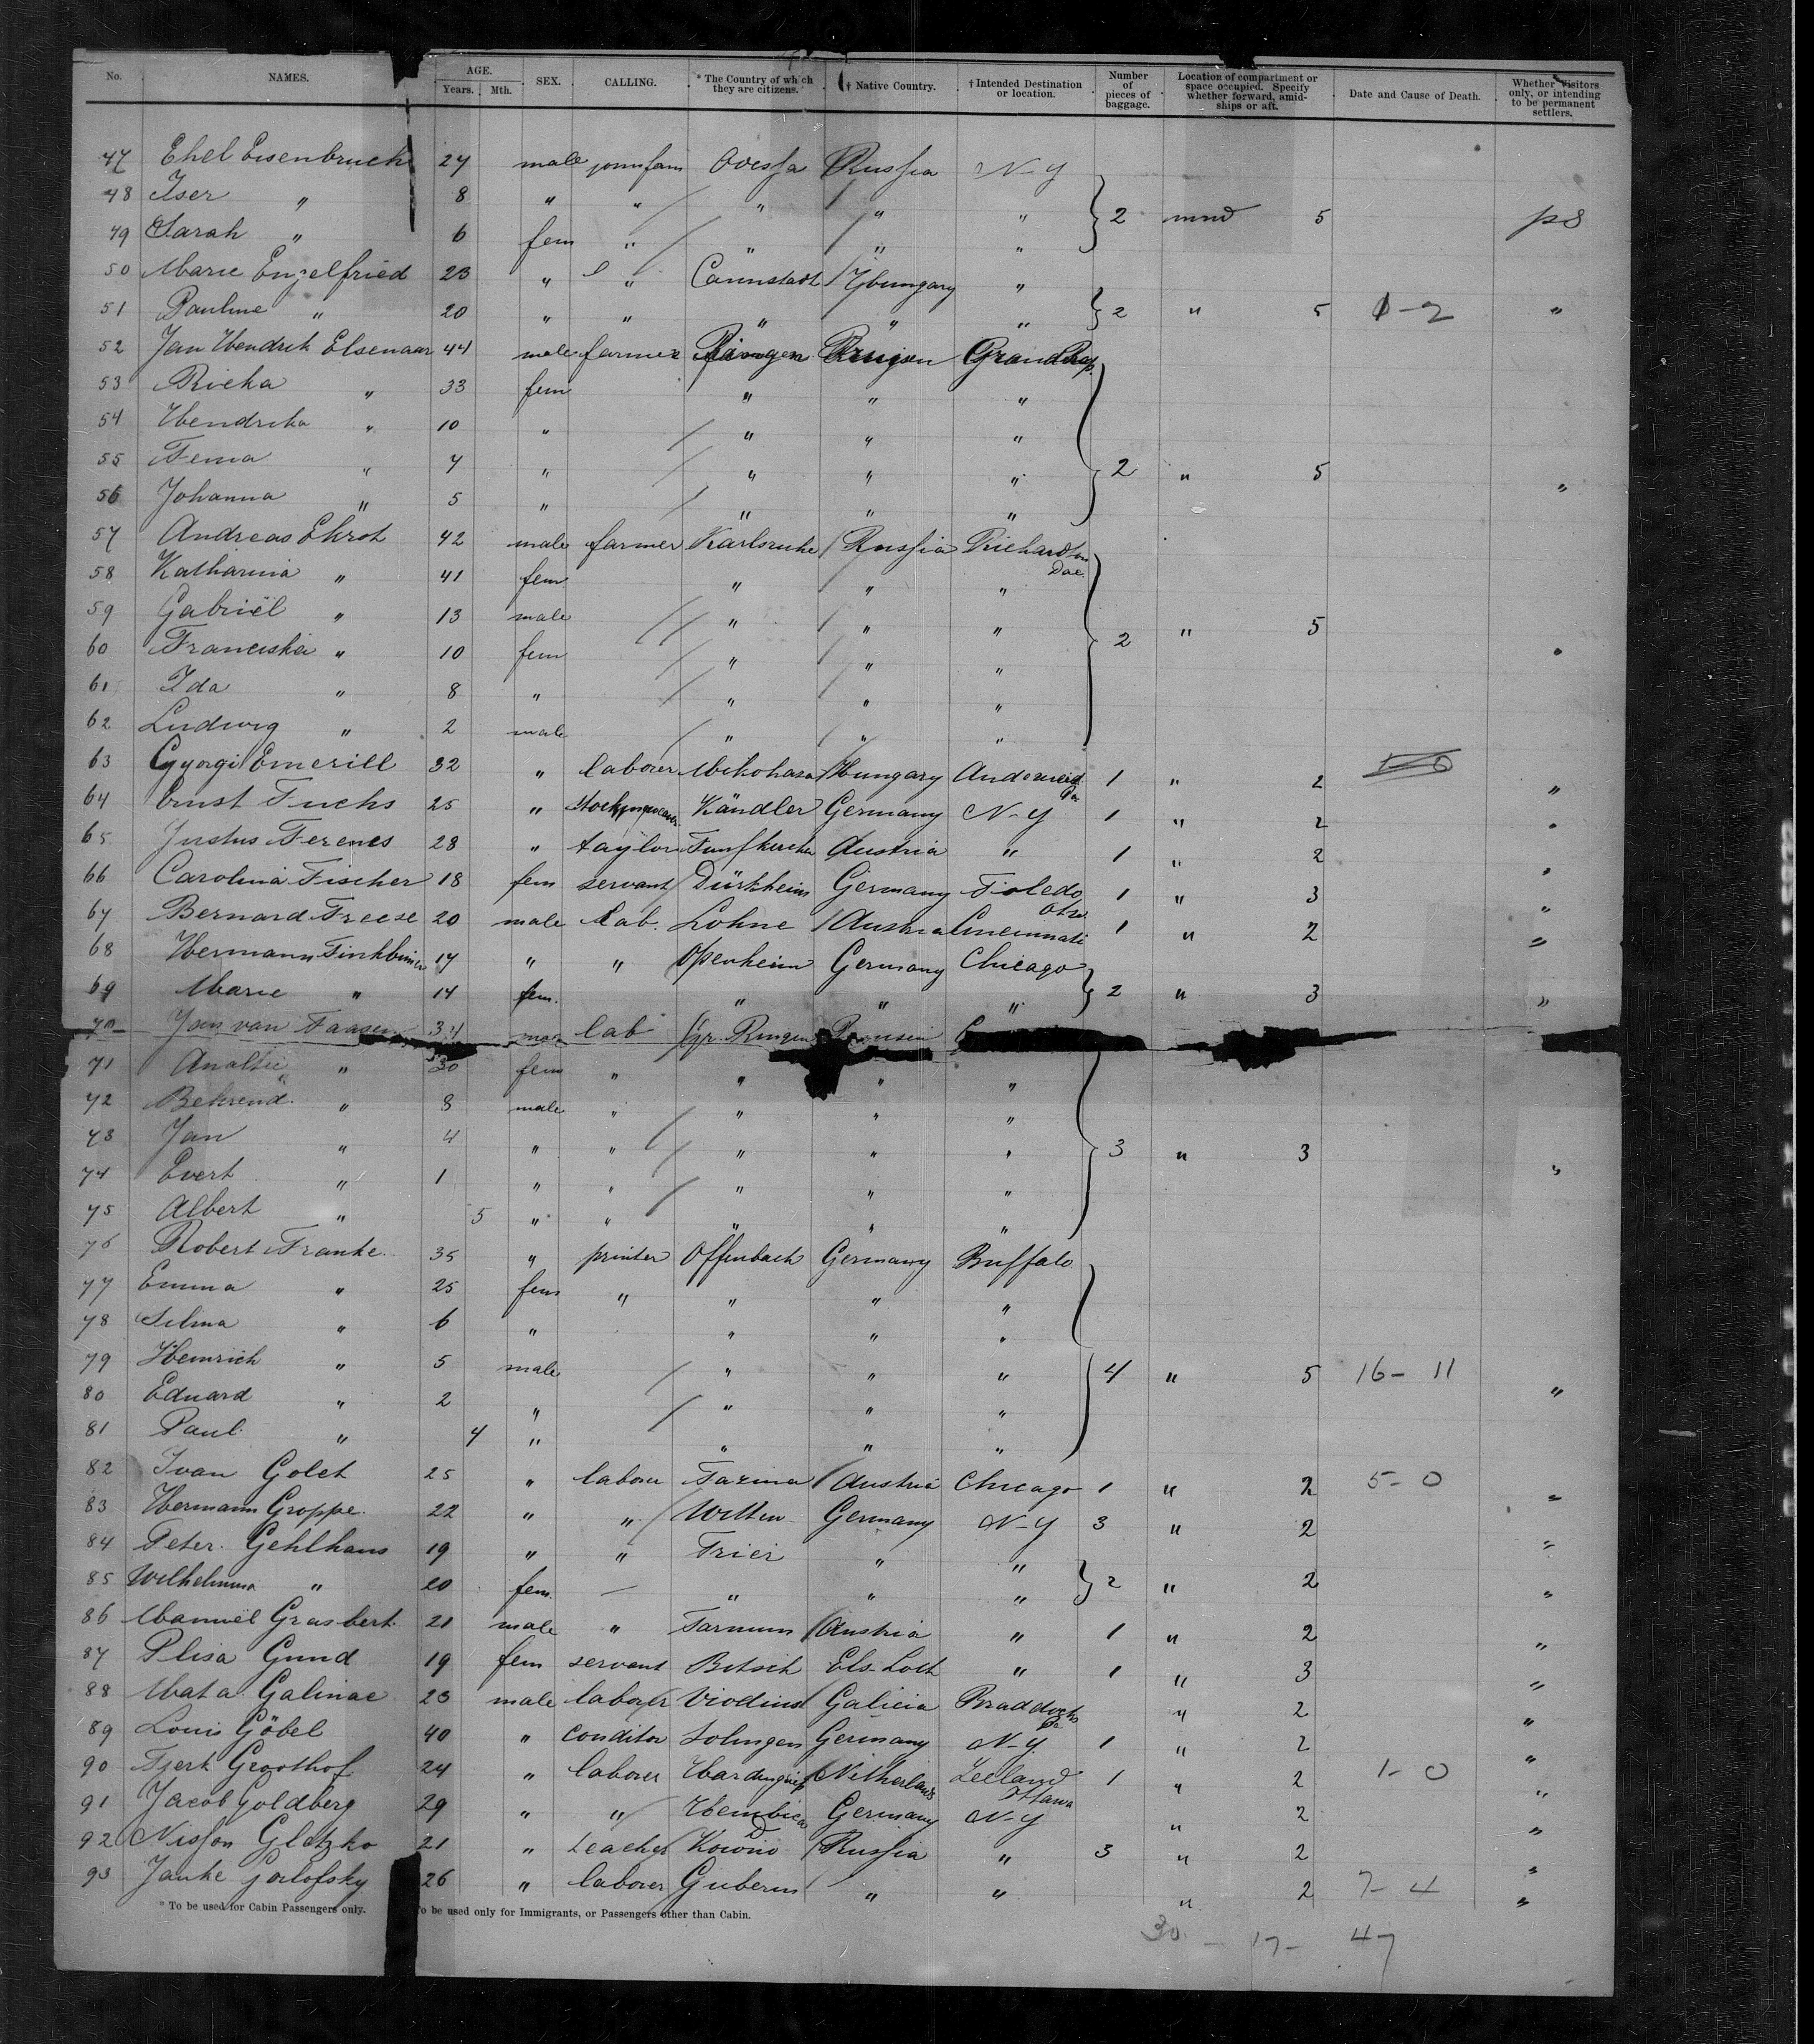 No. NAMES. AGE. Years. Mth. SEX. CALLING. * The Country of which they are citizens. † Native Country. † Intended Destination or location. Number of pieces of baggage. Location of compartment or space occupied. Specify whether forward, amidships or aft. Date and Cause of Death. Whether Visitors only, or intending to be permanent settlers.
47 Ehel Eisenbruch 27 male Odessa Russia N-Y
48 Iser " 8 " " " " " 2 5 ps
49 Sarah " 6 fem " " " "
50 Marie Enzelfried 23 " " Cannstadt Hungary "
51 Pauline " 20 " " " " " 2 " 5 1-2 "
52 Jan Hendrik Elsenaar 44 male farmer
53 Ricka " 33 fem " " "
54 Hendrika " 10 " " " "
55 Fema " 7 " " " " 2 " 5 "
56 Johanna " 5 " " " "
57 Andreas Ehrot 42 male farmer Karlsruhe Russia Richardton Dac.
58 Katharina " 41 fem " " "
59 Gabriël " 13 male " " " 2 " 5
60 Franciska " 10 fem " " " "
61 Ida " 8 " " " "
62 Ludwig " 2 male " " "
63 Gyorgi Emerill 32 " laborer Hungary 1 " 2 "
64 Ernst Fuchs 25 " Kändler Germany N-Y 1 " 2 "
65 Justus Ferencs 28 " taÿlor Austria " 1 " 2 "
66 Carolina Fischer 18 fem servant Dürkheim Germany Toledo Ohio 1 " 3 "
67 Bernard Freese 20 male lab. Lohne Austria Cincinnati 1 " 2 "
68 Hermann Finkbeiner 17 " " Openheim Germany Chicago
69 Marie " 14 fem. " " " 2 " 3 "
70 Jan van Faasen 34 lab
71 Analtie " 30 fem " " " "
72 Behrend " 8 male " " " "
73 Jan " 4 " " " " " 3 " 3 "
74 Evert " 1 " " " " "
75 Albert " 5 " " " " "
76 Robert Franke 35 " printer Offenbach Germany Buffalo
77 Emma " 25 fem " " " "
78 Selma " 6 " " " "
79 Heinrich " 5 male " " " 4 " 5 16-11 "
80 Eduard " 2 " " " "
81 Paul " 4 " " " "
82 Ivan Golet 25 " laborer Farina Austria Chicago 1 " 2 5-0 "
83 Hermann Groppe 22 " " Witten Germany N-Y 3 " 2 "
84 Peter Gehlhaus 19 " " Trier " "
85 Wilhelmina " 20 fem. — " " " 2 " 2 "
86 Manuël Grasbert 21 male " Austria " 1 " 2 "
87 Elisa Gund 19 fem servant Bitsch Els-Loth " 1 " 3 "
88 Mata Galinac 23 male laborer Galicia Braddock Pa " 2 "
89 Louis Göbel 40 " conditor Solingen Germany N-Y 1 " 2 "
90 Tjerk Groothof 24 " laborer Netherlands Zeeland Ottawa 1 " 2 1-0 "
91 Jacob Goldberg 29 " " Germany N-Y " 2 "
92 Nisson Gletzko 21 " teacher Kowno Russia " 3 " 2 "
93 Janke Gorlofsky 26 " laborer Gubern " " " 2 7-4 "
* To be used for Cabin Passengers only. To be used only for Immigrants, or Passengers other than Cabin.
30 - 17 - 47